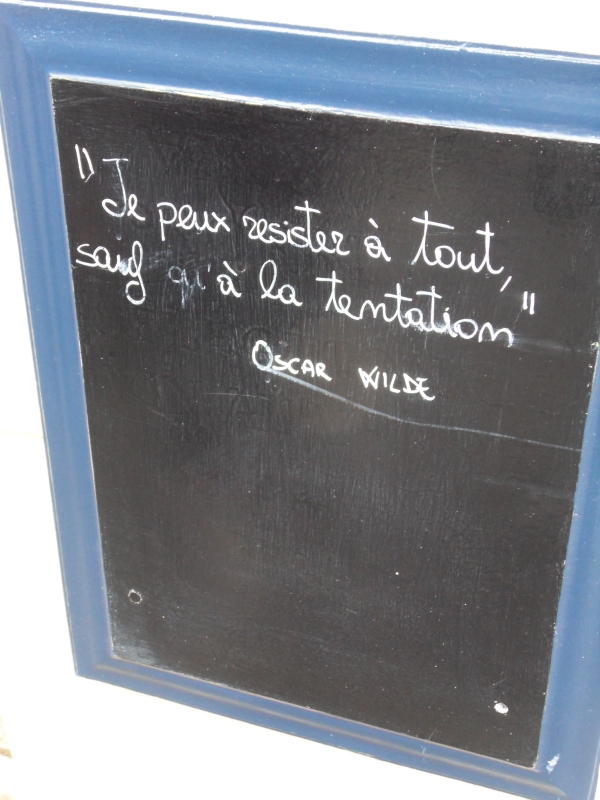 "Je peux resister à tout,
sauf qu'à la tentation"
OSCAR WILDE